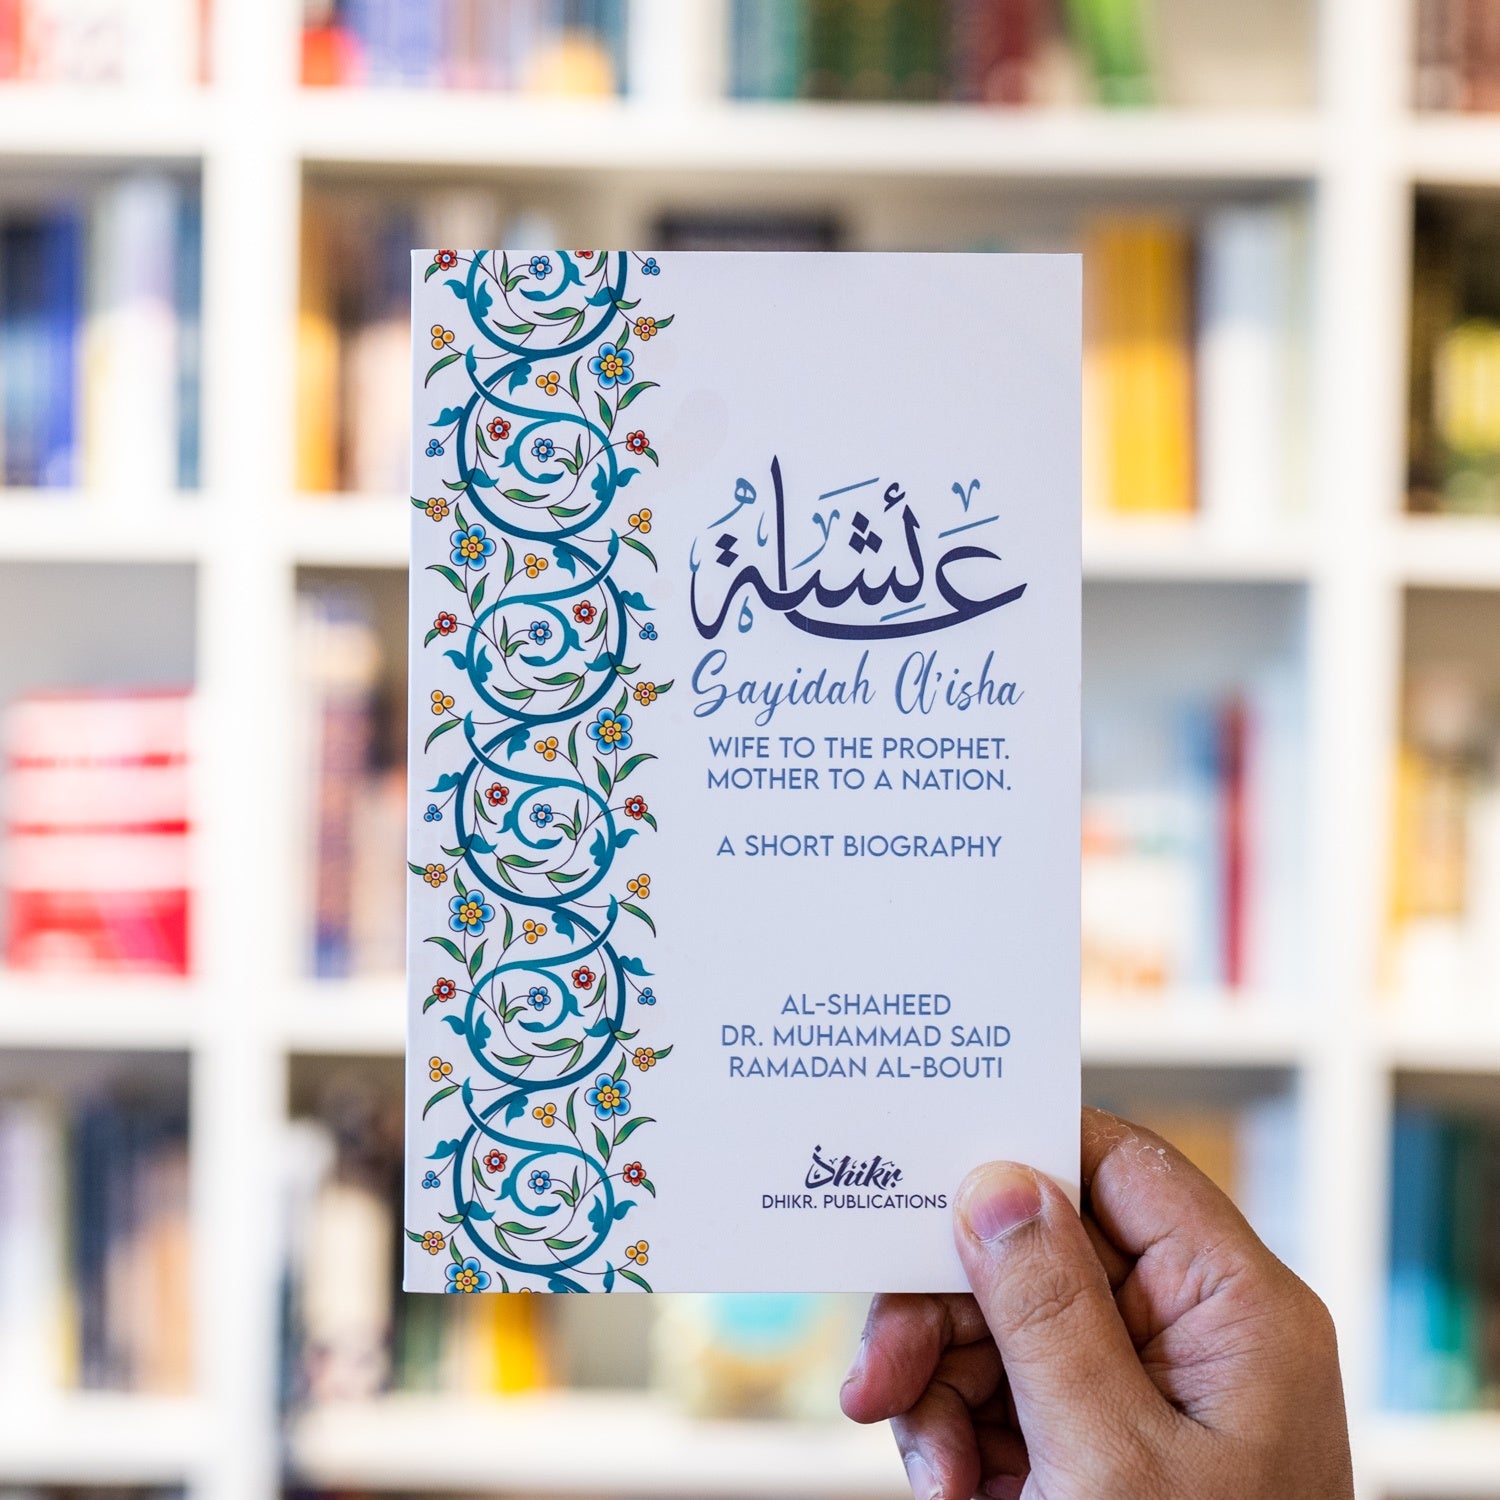 عائشة
Sayidah A'isha
WIFE TO THE PROPHET.
MOTHER TO A NATION.
A SHORT BIOGRAPHY
AL-SHAHEED
DR. MUHAMMAD SAID
RAMADAN AL-BOUTI
Dhikr.
DHIKR. PUBLICATIONS